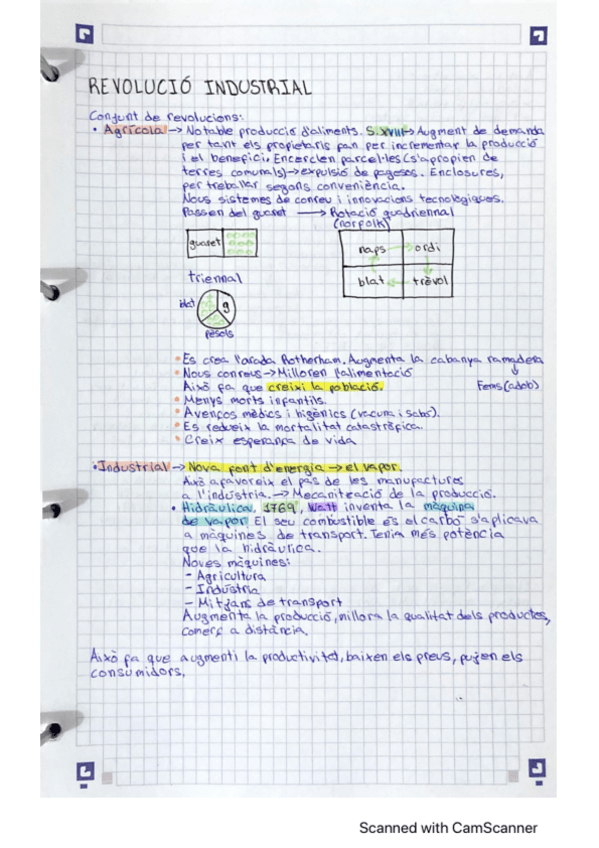 REVOLUCIÓ INDUSTRIAL
Conjunt de revolucions:
• Agrícola → Notable producció d'aliments. S.XVIII → Augment de demanda
per tant els propietaris fan per incrementar la producció
i el benefici. Encerclen parcel·les (s'apropien de
terres comunals) → expulsió de pagesos. Enclosures,
per treballar segons conveniència.
Nous sistemes de conreu i innovacions tecnològiques.
Passen del guaret → Rotació quadriennal
(norfolk)
guaret
naps → ordi
blat ← trèvol
triennal
blat
g
pèsols
• Es crea l'arada Rotherham. Augmenta la cabanya ramadera
• Nous conreus → Milloren l'alimentació
Això fa que creixi la població. Fems (adob)
• Menys morts infantils.
• Avenços mèdics i higènics (vacuna i sabó).
• Es redueix la mortalitat catastròfica.
• Creix esperança de vida
• Industrial → Nova font d'energia → el vapor.
Això afavoreix el pas de les manufactures
a l'indústria. → Mecanització de la producció.
• Hidràulica, 1769, Watt inventa la màquina
de vapor. El seu combustible és el carbó s'aplicava
a màquines de transport. Tenia més potència
que la hidràulica.
Noves màquines:
- Agricultura
- Indústria
- Mitjans de transport
Augmenta la producció, millora la qualitat dels productes,
comerç a distància.
Això fa que augmenti la productivitat, baixen els preus, pujen els
consumidors,
Scanned with CamScanner